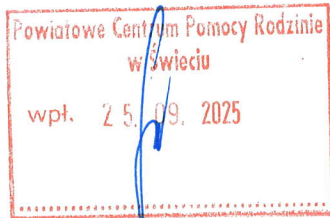 Powiatowe Centrum Pomocy Rodzinie
w Świeciu
wpł. 25. 09. 2025